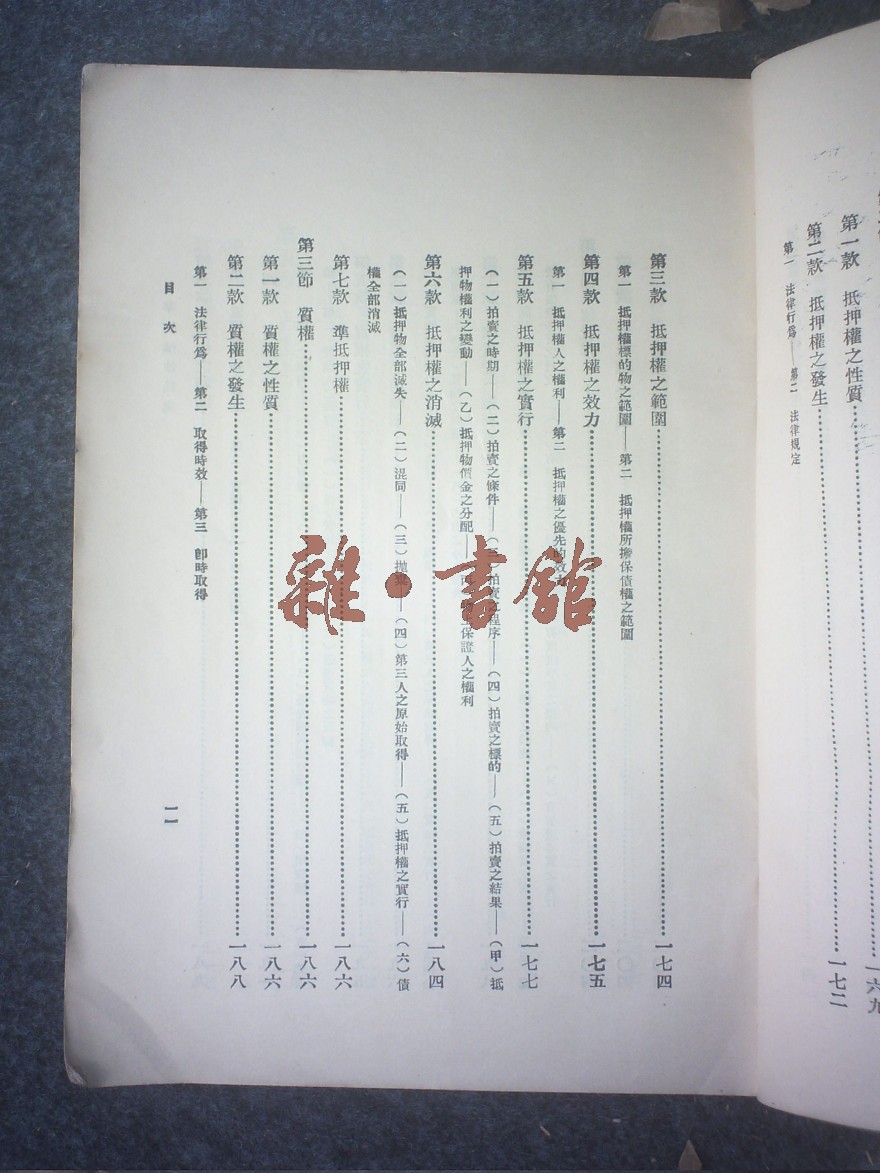 第一款　抵押權之性質………一六九
第二款　抵押權之發生………一七二
第一　法律行爲——第二　法律規定
第三款　抵押權之範圍………一七四
第一　抵押權標的物之範圍——第二　抵押權所擔保債權之範圍
第四款　抵押權之效力………一七五
第一　抵押權人之權利——第二　抵押權之優先的效力
第五款　抵押權之實行………一七七
（一）拍賣之時期——（二）拍賣之條件——（三）拍賣之程序——（四）拍賣之標的——（五）拍賣之結果——（甲）抵
押物權利之變動——（乙）抵押物價金之分配——保證人之權利
第六款　抵押權之消滅………一八四
（一）抵押物全部滅失——（二）混同——（三）拋棄——（四）第三人之原始取得——（五）抵押權之實行——（六）債
權全部消滅
第七款　準抵押權………一八六
第三節　質權………一八六
第一款　質權之性質………一八六
第二款　質權之發生………一八八
第一　法律行爲——第二　取得時效——第三　卽時取得
目次
一一
雜·書館